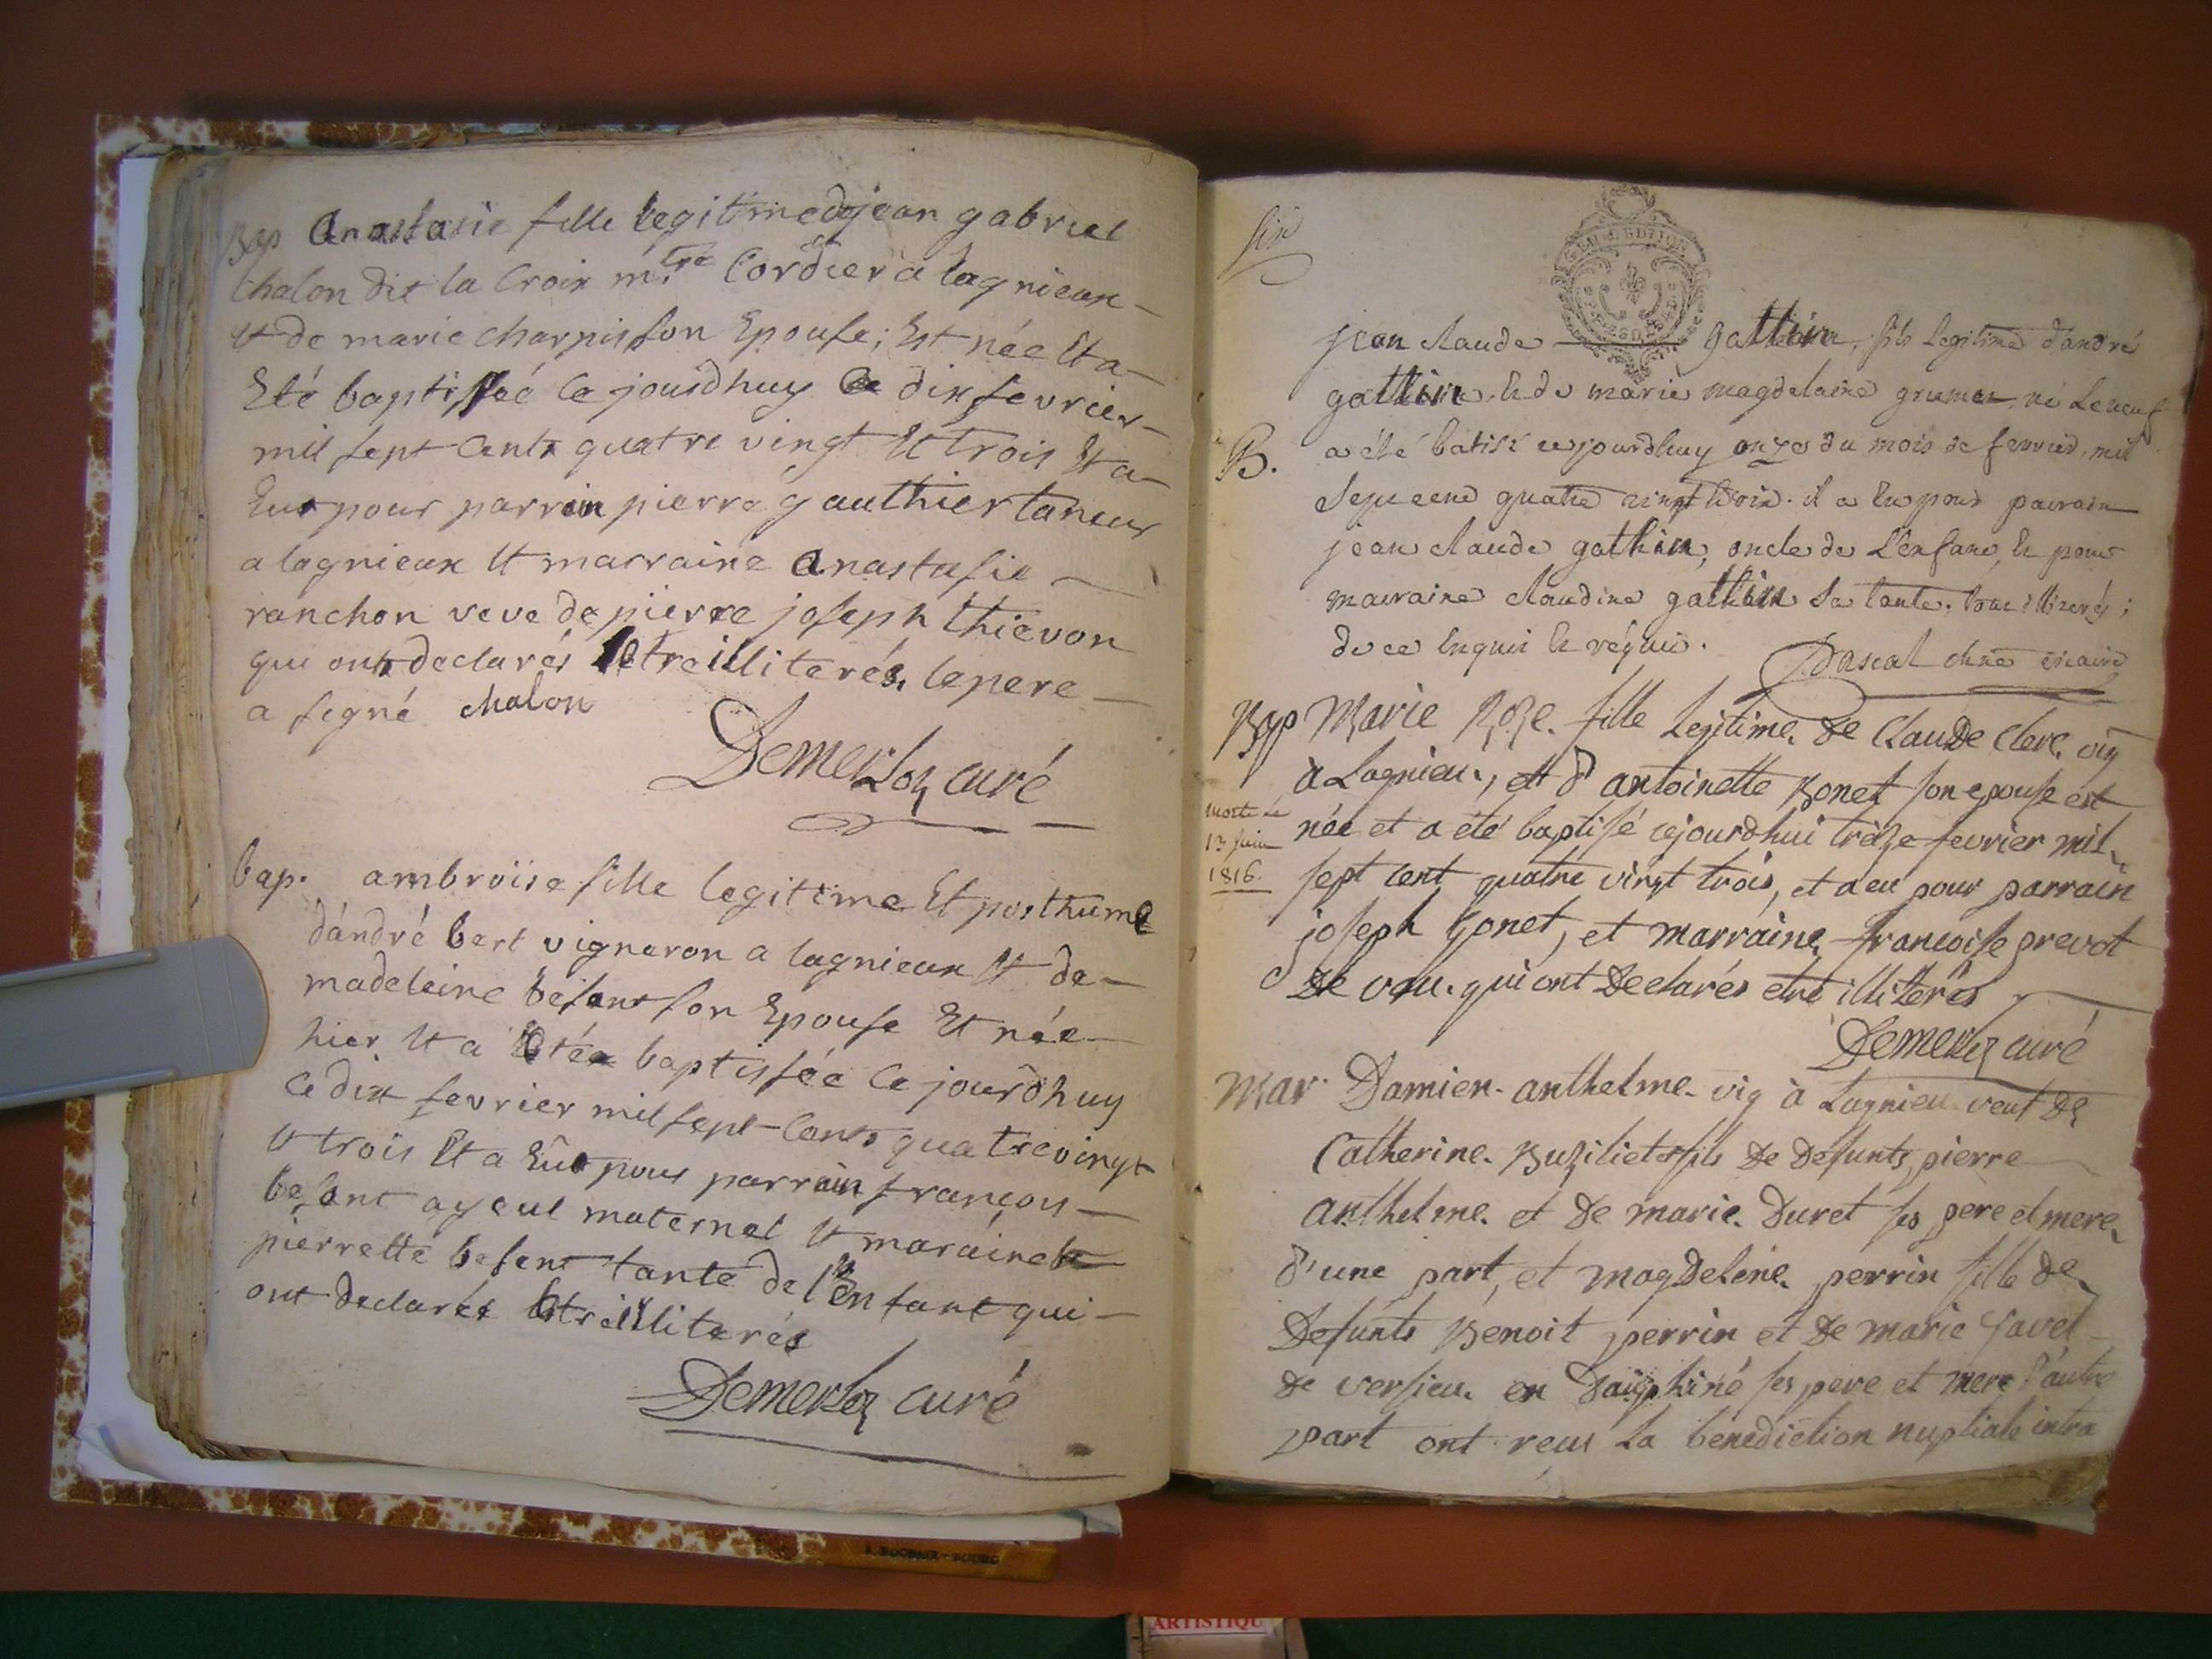 Bap Anastasie fille legitime de jean gabriel
Chalon dit la Croix m.tre Cordier a lagnieux
Et de marie charpisson Epouse; Est née Et a
Eté baptissée ce jourdhuy ce dix fevrier
mil sept Cents quatre vingt Et trois Et a
Eut pour parrain pierre gauthier taneur
a lagnieux Et marraine anastasie
ranchon veve de pierre joseph thievon
qui ont declarés Etre illiterés, le pere
a signé chalon
Demerloz curé
bap. ambroise fille legitime Et posthume
dándré bert vigneron a lagnieux Et de
madeleine besant son Epouse Et née
hier Et a Etée baptissée ce jourdhuy
ce dix fevrier mil sept Cents quatrevingt
Et trois Et a Eut pour parrain françois
besant ayeul maternel Et maraine
pierrette besent tante de l'Enfant qui
ont declarés Etre illiterés
Demerloz curé
six
jean claude gathin, fils legitime d'andré
gathin, Et de marie magdelaine grumet, né Le neuf
B. a été batisé cejourdhuy onze du mois de fevrier mil
Sept cent quatre vingt trois. il a Eu pour parrain
jean claude gathin, oncle de L'enfant, Et pour
marraine claudine gathin Sa tante, tous illiterés;
de ce Enquis Et réquis.
Pascal vicaire
Bap Marie Roze. fille Legitime de Claude Clerc, vig
à Lagnieu, et d'antoinette Bonet son epouse est
née et a été baptisé cejourdhui treize fevrier mil
sept cent quatre vingt trois, et a eu pour parrain
joseph gonet, et marraine francoise prevot
de vau. qui ont declarés etre illiterés
morte le
13 juin
1816.
Demerloz curé
Mar. Damien. anthelme. vig à Lagnieu. veuf de
Catherine. Buziliet fils de defunts pierre
anthelme. et de marie. Duret ses pere et mere
d'une part, et magdeleine. perrin fille de
Defunts Benoit perrin et de marie javel
de versieu. en Dauphiné ses pere et mere d'autre
part ont reçus la benediction nuptiale intra
A. ROCHAIX-BOURG
ARTISTIQU